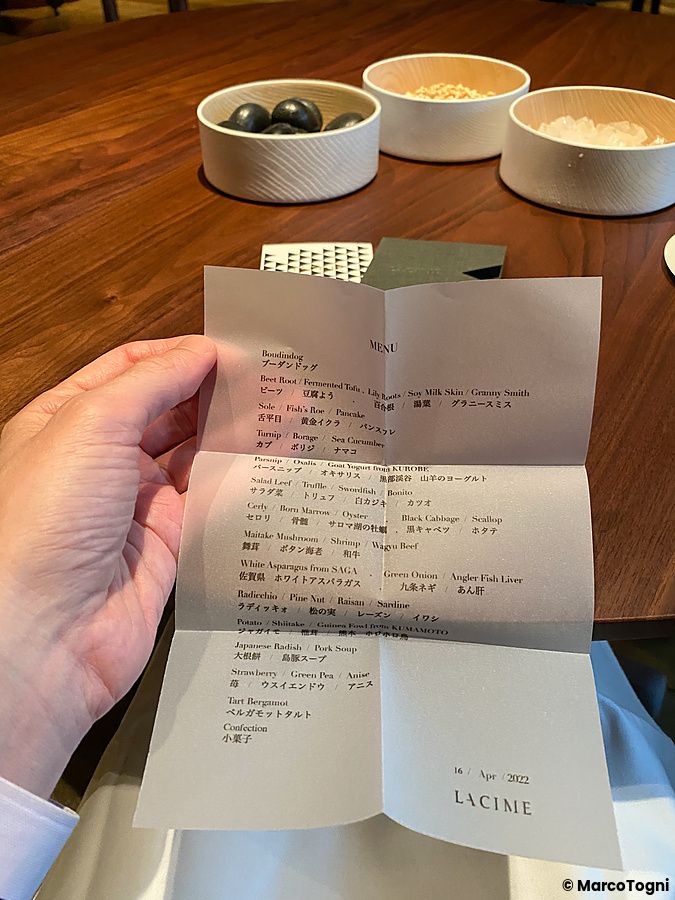 MENU
Boudindog
ブーダンドッグ
Beet Root / Fermented Tofu , Lily Roots / Soy Milk Skin / Granny Smith
ビーツ / 豆腐よう 、 百合根 / 湯葉 / グラニースミス
Sole / Fish's Roe / Pancake
舌平目 / 黄金イクラ / パンスフレ
Turnip / Borage / Sea Cucumber
カブ / ボリジ / ナマコ
Parsnip / Oxalis / Goat Yogurt from KUROBE
パースニップ / オキサリス / 黒部渓谷 山羊のヨーグルト
Salad Leef / Truffle / Swordfish / Bonito
サラダ菜 / トリュフ / 白カジキ / カツオ
Cerly / Born Marrow / Oyster 、 Black Cabbage / Scallop
セロリ / 骨髄 / サロマ湖の牡蠣 、 黒キャベツ / ホタテ
Maitake Mushroom / Shrimp / Wagyu Beef
舞茸 / ボタン海老 / 和牛
White Asparagus from SAGA 、 Green Onion / Angler Fish Liver
佐賀県 ホワイトアスパラガス 、 九条ネギ / あん肝
Radicchio / Pine Nut / Raisan / Sardine
ラディッキォ / 松の実 / レーズン / イワシ
Potato / Shiitake / Guinea Fowl from KUMAMOTO
ジャガイモ / 椎茸 / 熊本 ホロホロ鶏
Japanese Radish / Pork Soup
大根餅 / 島豚スープ
Strawberry / Green Pea / Anise
苺 / ウスイエンドウ / アニス
Tart Bergamot
ベルガモットタルト
Confection
小菓子
16 / Apr / 2022
LACIME
© MarcoTogni